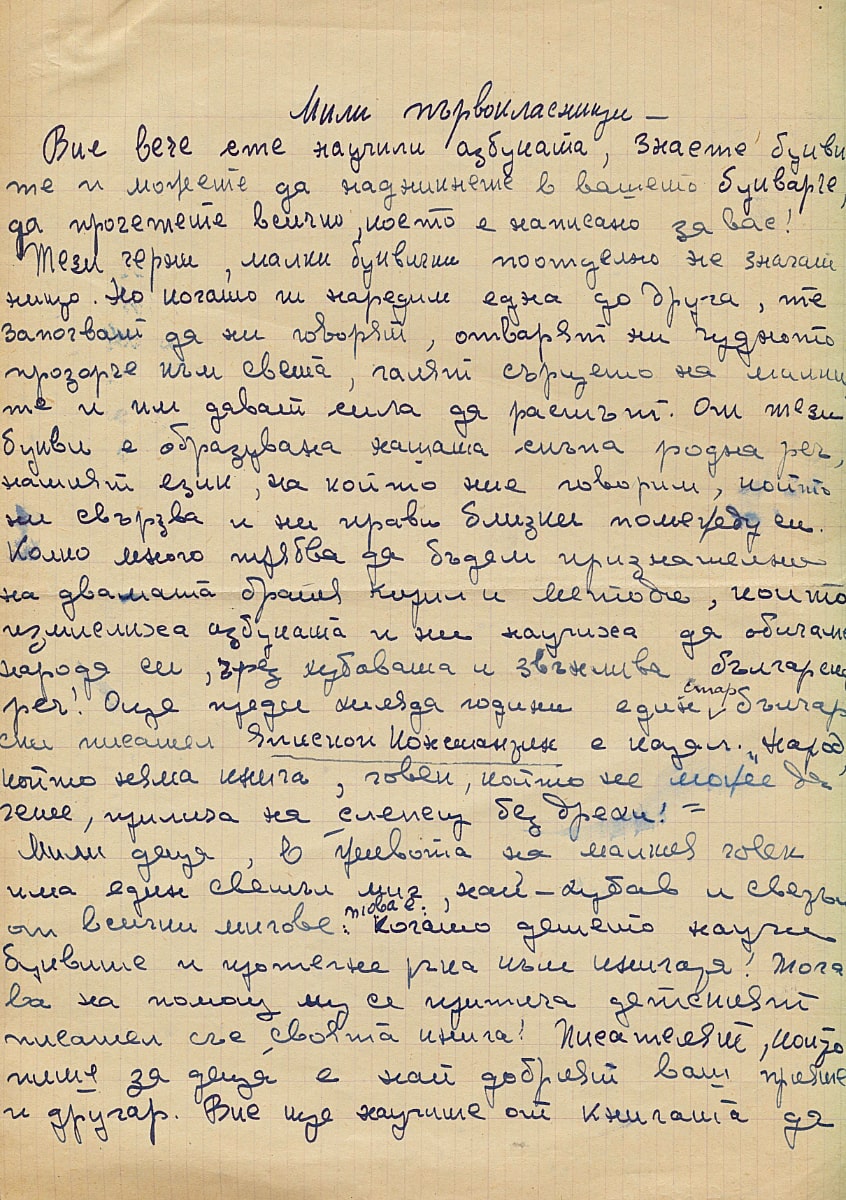 Мили първокласници —
Вие вече сте научили азбуката, Знаете букви
те и можете да надникнете в вашето букварче,
да прочетете всичко, което е написано за вас!
Тези черни, малки буквички поотделно не значат
нищо. Но когато ги наредим една до друга, те
започват да ни говорят, отварят ни чудното
прозорче към света, галят сърцето на малки
те и им дават сила да растът. От тези
букви е образувана нашата скъпа родна реч,
нашият език, на който ние говорим, който
ни свързва и ни прави близки помежду си.
Колко много трябва да бъдем признателни
на двамата братя Кирил и Методи, които
измислиха азбуката и ни научиха да обичаме
народа си, чрез хубавата и звънлива българска
реч! Още преди хиляда години един стар българ
ски писател Епископ Константин е казал. "Народ,
който няма книга, човек, който не може да
чете, прилича на слепец без дрехи! =
Мили деца, в живота на малкия човек
има един светъл миг, най-хубав и свезъл
от всички мигове: това е: Когато детето научи
буквите и протегне ръка към книгата! Тога
ва на помощ му се притича детският
писател със своята книга! Писателят, който
пише за деца е най добрият ваш прияте
и другар. Вие ще научите от книгата да